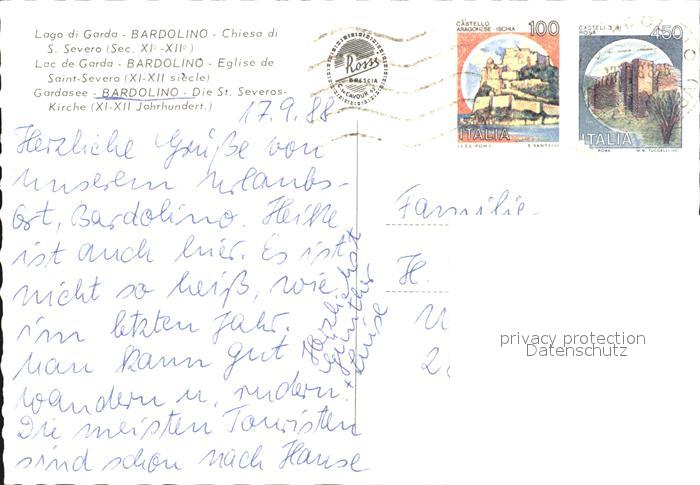 Lago di Garda - BARDOLINO - Chiesa di
S. Severo (Sec. XI° -XII°)
Lac de Garda - BARDOLINO - Eglise de
Saint-Severo (XI-XII siècle)
Gardasee - BARDOLINO - Die St. Severos-
Kirche (XI-XII Jahrhundert.)
Rossi
BRESCIA
CASTELLO
ARAGONESE - ISCHIA
100
ITALIA
I.P.Z.S. ROMA
E. VANGELLI
CASTELLO DI
450
ITALIA
ROMA
17.9.88
Herzliche Grüße von
unserem Urlaubs-
ort, Bardolino. Heike
ist auch hier. Es ist
nicht so heiß, wie
im letzten Jahr.
Man kann gut
wandern u. rudern.
Die meisten Touristen
sind schon nach Hause
Herzlichst
Günther
+ Luise
Familie
H.
privacy protection
Datenschutz